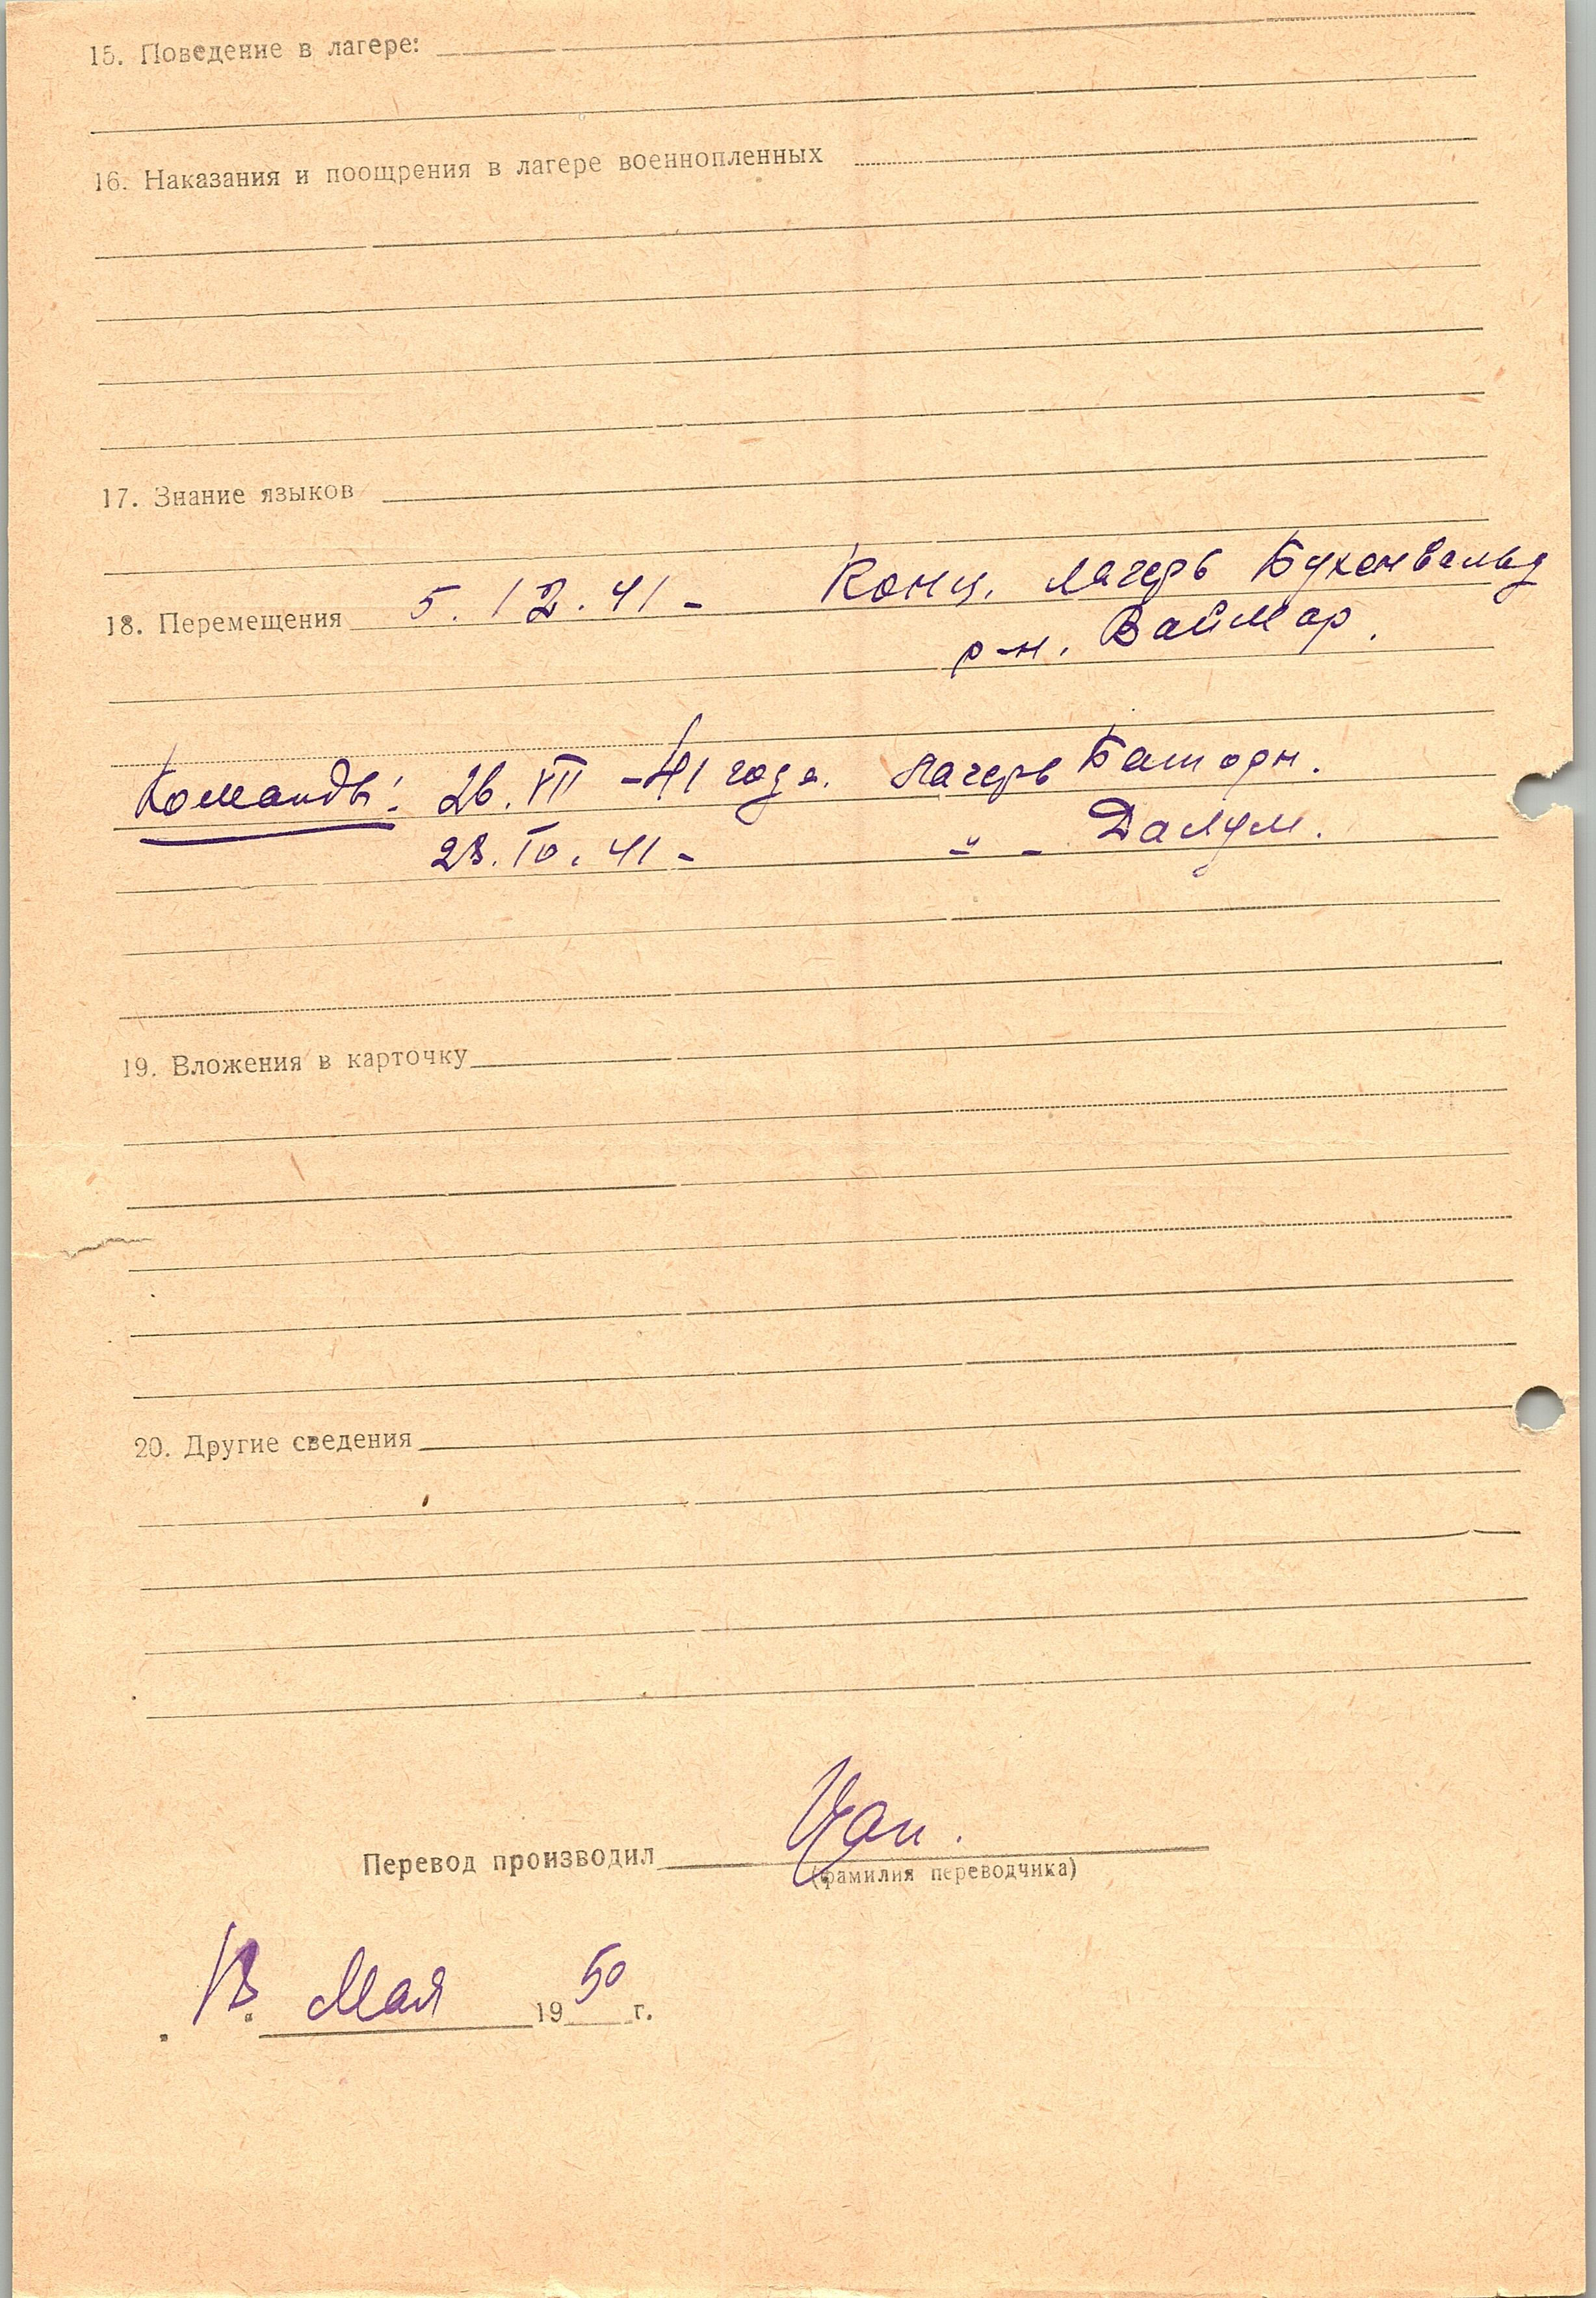 15. Поведение в лагере:
16. Наказания и поощрения в лагере военнопленных
17. Знание языков
18. Перемещения 5.12.41 - Конц. лагерь Бухенвальд
р-н. Ваймар.
Команды: 26.VII - 41 года. Лагерь Баторн.
23. 10. 41 - - " - Далум.
19. Вложения в карточку
20. Другие сведения
Перевод производил
(фамилия переводчика)
Мая 1950 г.